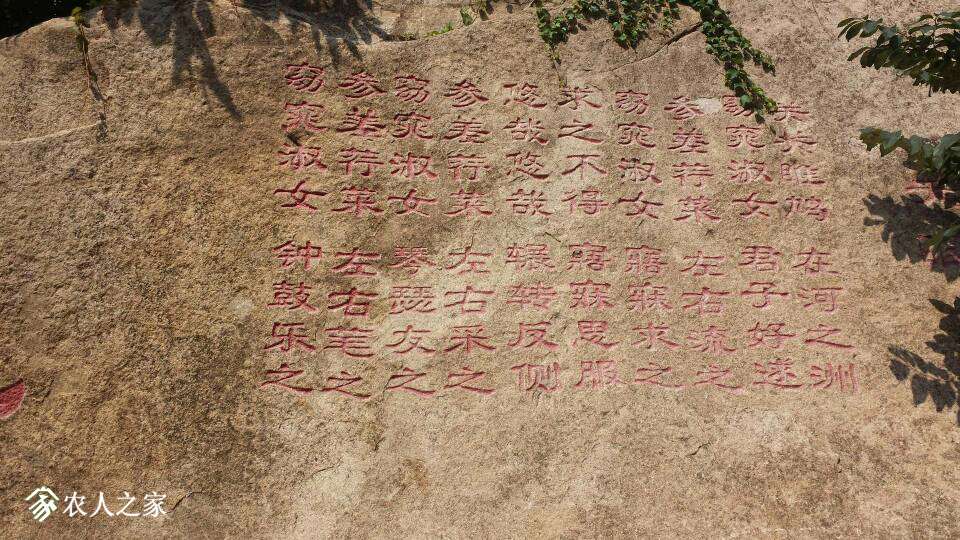 关关雎鸠 在河之洲
窈窕淑女 君子好逑
参差荇菜 左右流之
窈窕淑女 寤寐求之
求之不得 寤寐思服
悠哉悠哉 辗转反侧
参差荇菜 左右采之
窈窕淑女 琴瑟友之
参差荇菜 左右芼之
窈窕淑女 钟鼓乐之
农人之家